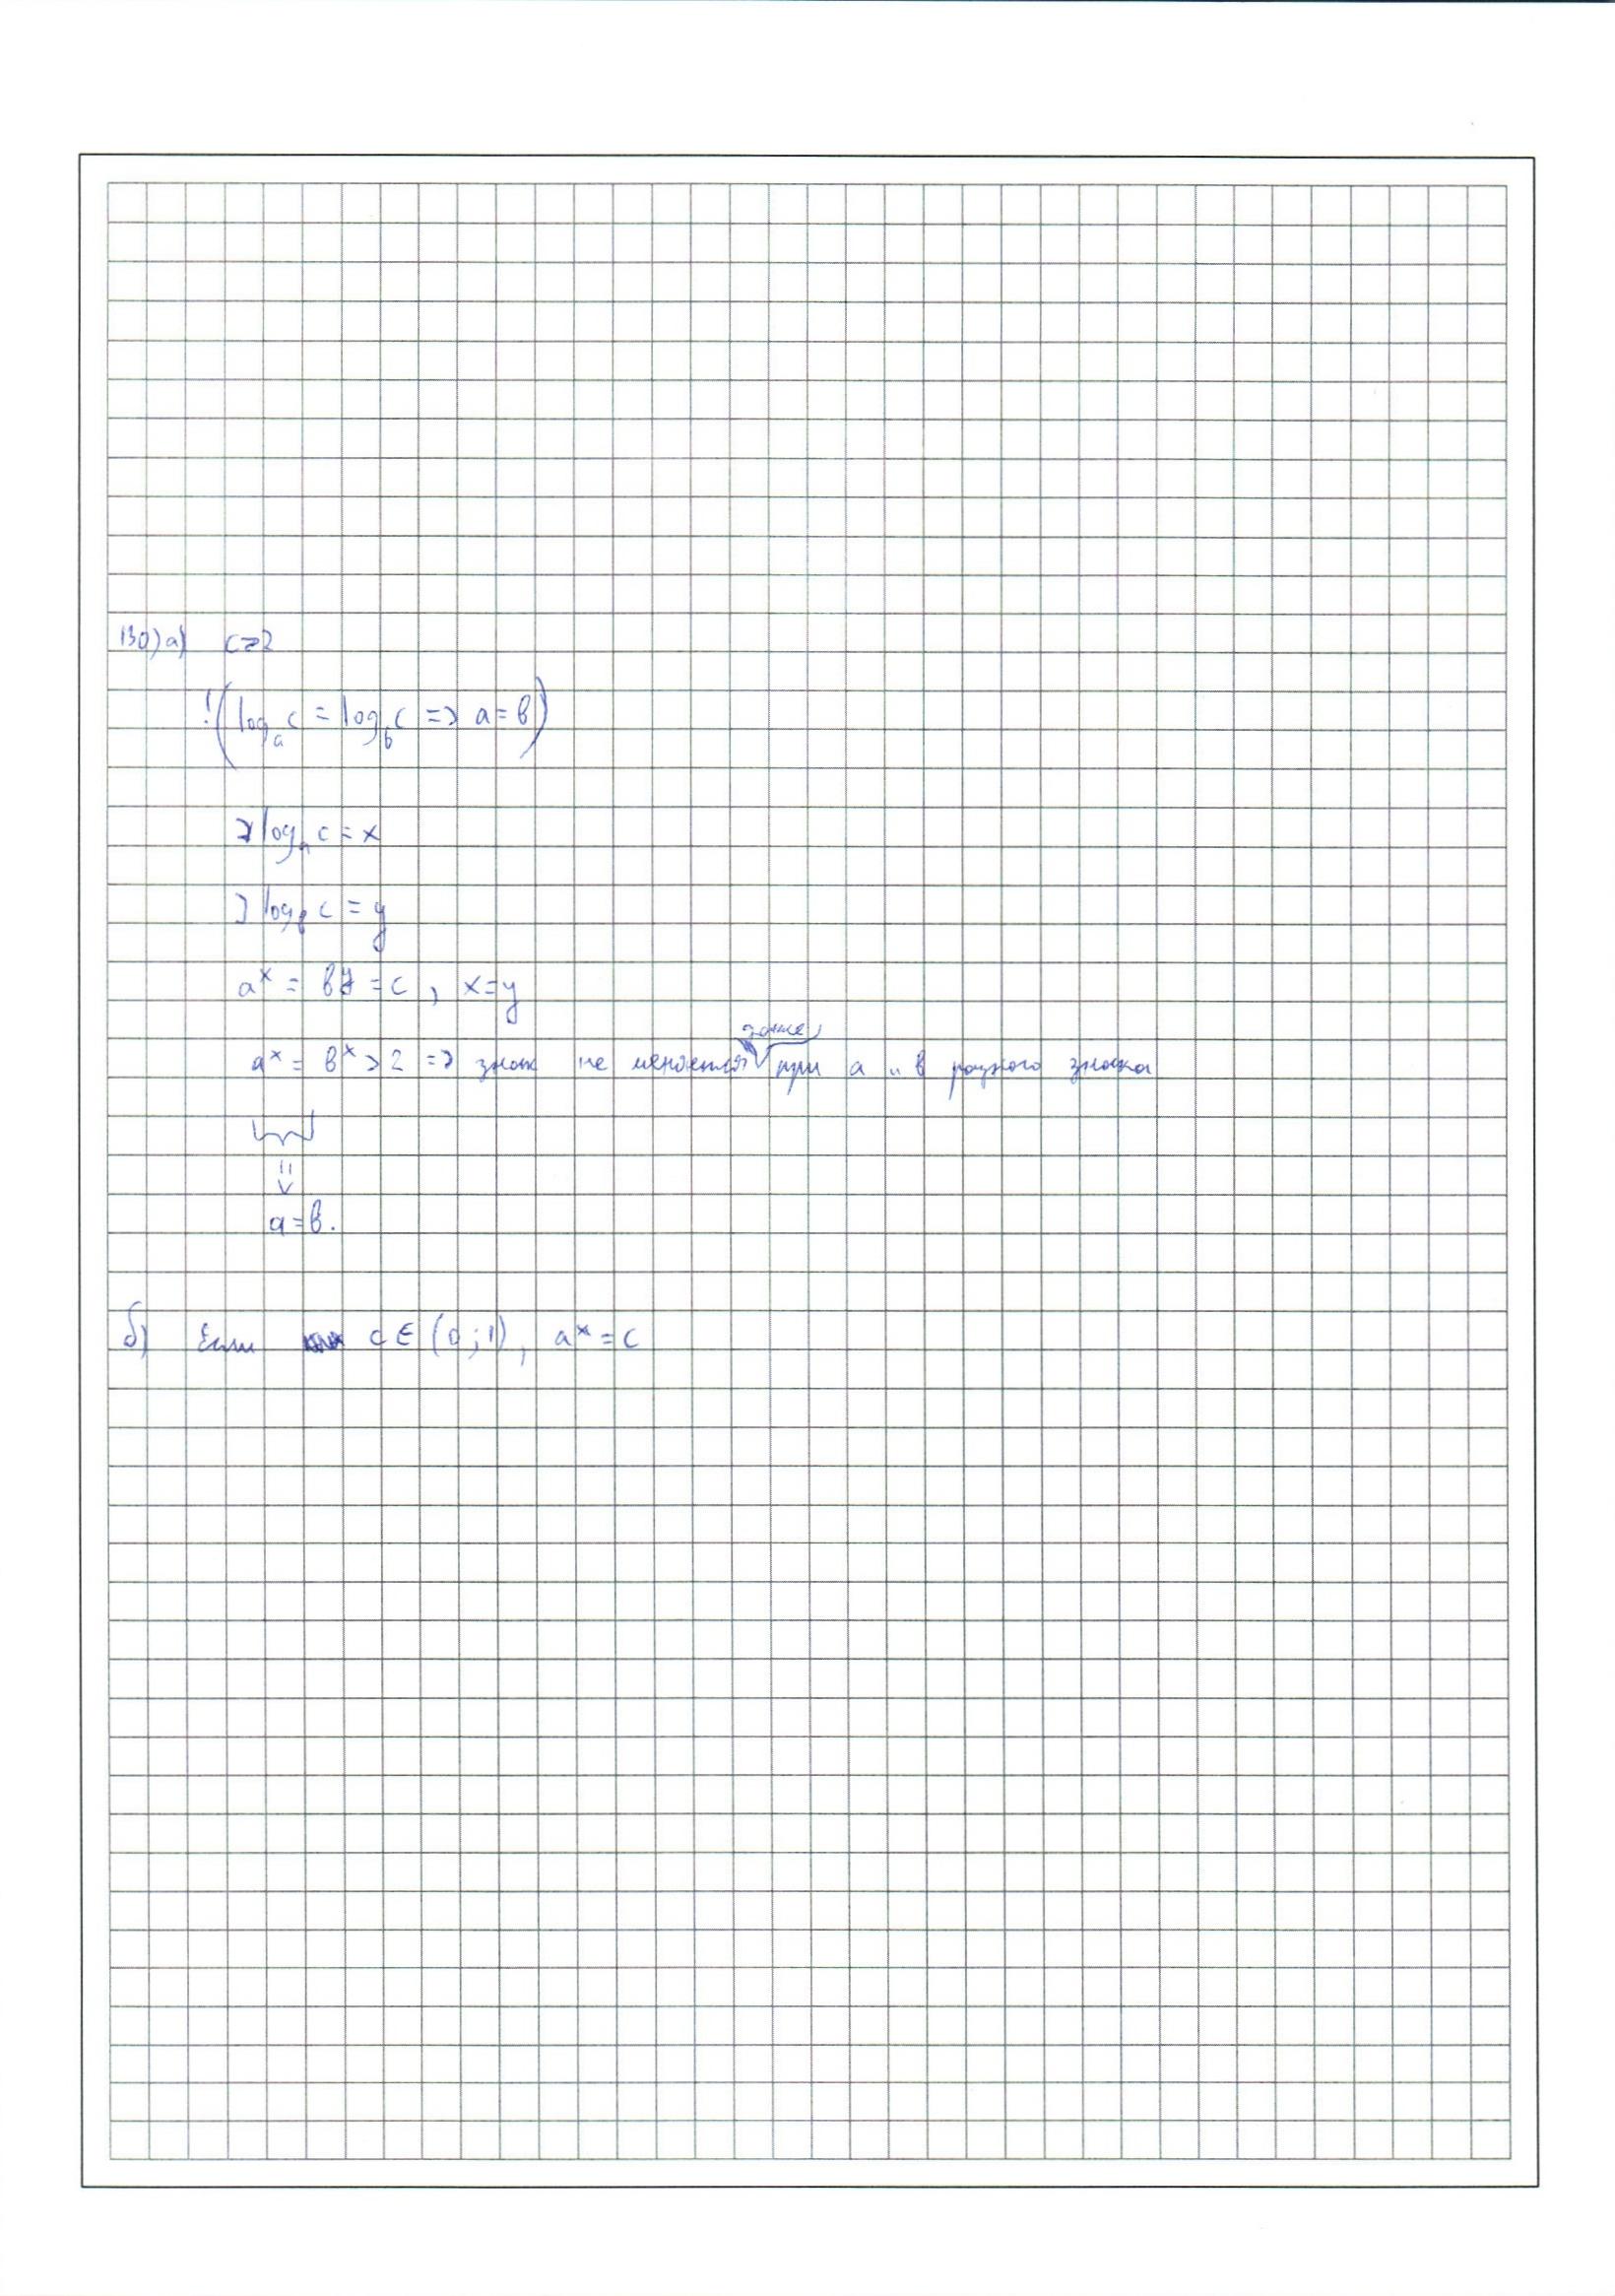 130) а) c>2
! (log_a c = log_b c => a = b)
] log_a c = x
] log_b c = y
a^x = b^y = c, x=y
даже
a^x = b^x > 2 => знак не меняется при a и b разного знака
=>
a = b.
б) Если c ∈ (0;1), a^x = c